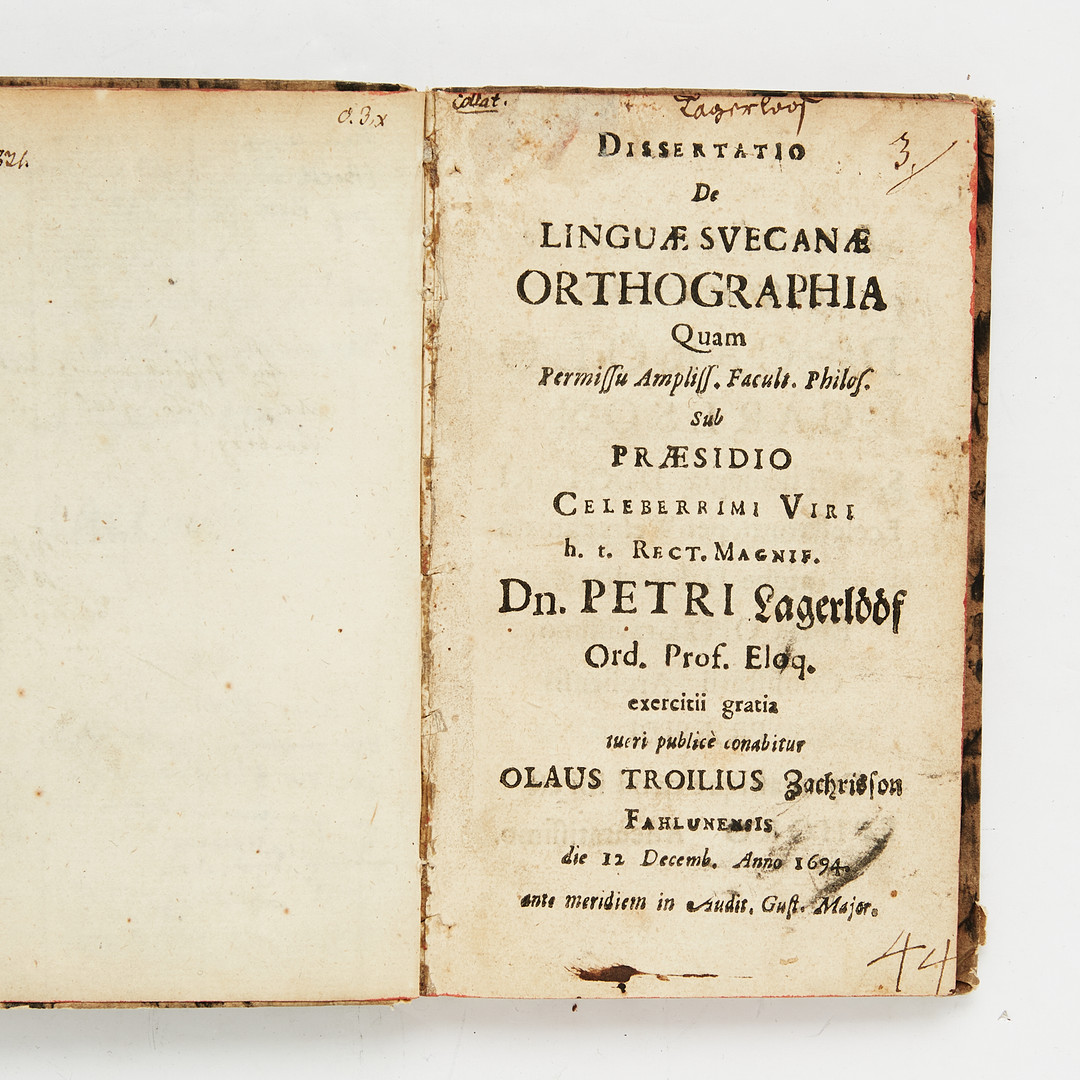 d. 3x
321.
Collat.
Lagerlööf
3.
DISSERTATIO
De
LINGUÆ SVECANÆ
ORTHOGRAPHIA
Quam
Permiſſu Ampliſſ. Facult. Philoſ.
Sub
PRÆSIDIO
CELEBERRIMI VIRI
h. t. RECT. MAGNIF.
Dn. PETRI Lagerlööf
Ord. Prof. Eloq.
exercitii gratia
tueri publicè conabitur
OLAUS TROILIUS Zachrisſon
FAHLUNENSIS
die 12 Decemb. Anno 1694.
ante meridiem in Audit. Guſt. Major.
44